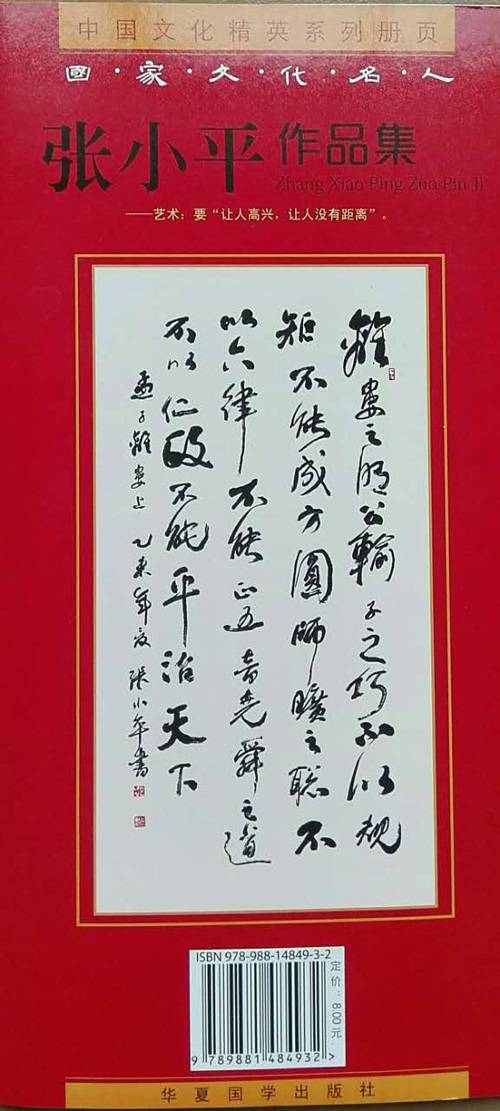 中国文化精英系列册页
國·家·文·代·名·人
张小平作品集
Zhang Xiao Ping Zuo Pin Ji
——艺术：要“让人高兴，让人没有距离”。
離娄之明公輸子之巧不以规
矩不能成方圆師曠之聪不
以六律不能正五音尧舜之道
不以仁政不能平治天下
孟子離娄上 乙未年夏 张小平書
ISBN 978-988-14849-3-2
定价：8.00元
9 789881 484932 >
华夏国学出版社